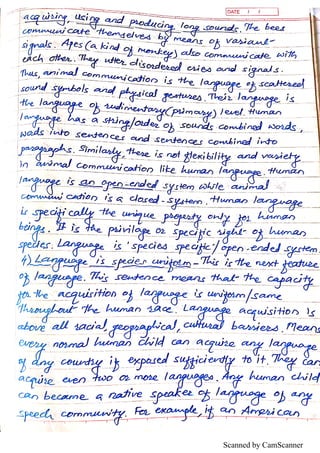 DATE
acquiring, using and producing long sounds. The bees
communicate themselves by means of various
signals. Apes (a kind of monkey) also communicate with
each other. They utter disordered cries and signals.
Thus, animal communication is the language of scattered
sound symbols and physical gestures. Their language is
the language of rudimentary (primary) level Human
language has a string/order of sounds combined words,
words into sentences and sentences combined into
paragraphs. Similarly, there is not flexibility and variety
in animal communication like human language. Human
language is an open-ended system while animal
communication is a closed-system. Human language
is specifically the unique property only for human
beings. It is the privilage or specific right of human
species. Language is 'species specific'/open-ended system.
4) Language is species uniform - This is the next feature
of language. This sentence means that the capacity
for the acquisition of language is uniform/same
throughout the human race. Language acquisition is
above all racial, geographical, cultural barriers. Means
every normal human child can acquire any language
of any country if exposed sufficiently to it. They can
acquire even two or more languages. Any human child
can became a native speaker of language of any
speech community. For example, if an American
Scanned by CamScanner